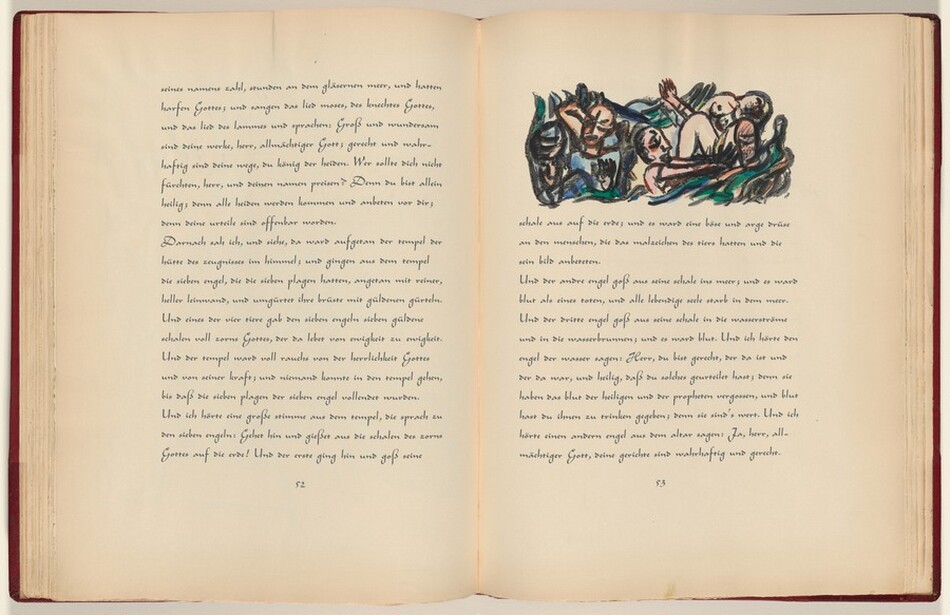 seines namens zahl, stunden an dem gläsernen meer, und hatten
harfen Gottes; und sangen das lied moses, des knechtes Gottes,
und das lied des lammes und sprachen: Groß und wundersam
sind deine werke, herr, allmächtiger Gott; gerecht und wahr-
haftig sind deine wege, du könig der heiden. Wer sollte dich nicht
fürchten, herr, und deinen namen preisen? Denn du bist allein
heilig; denn alle heiden werden kommen und anbeten vor dir;
denn deine urteile sind offenbar worden.
Darnach sah ich, und siehe, da ward aufgetan der tempel der
hütte des zeugnisses im himmel; und gingen aus dem tempel
die sieben engel, die die sieben plagen hatten, angetan mit reiner,
heller leinwand, und umgürtet ihre brüste mit güldenen gürteln.
Und eines der vier tiere gab den sieben engeln sieben güldene
schalen voll zorns Gottes, der da lebet von ewigkeit zu ewigkeit.
Und der tempel ward voll rauchs von der herrlichkeit Gottes
und von seiner kraft; und niemand konnte in den tempel gehen,
bis daß die sieben plagen der sieben engel vollendet wurden.
Und ich hörte eine große stimme aus dem tempel, die sprach zu
den sieben engeln: Gehet hin und gießet aus die schalen des zorns
Gottes auf die erde! Und der erste ging hin und goß seine
52
schale aus auf die erde; und es ward eine böse und arge drüse
an den menschen, die das malzeichen des tiers hatten und die
sein bild anbeteten.
Und der andre engel goß aus seine schale ins meer; und es ward
blut als eines toten, und alle lebendige seele starb in dem meer.
Und der dritte engel goß aus seine schale in die wasserströme
und in die wasserbrunnen; und es ward blut. Und ich hörte den
engel der wasser sagen: Herr, du bist gerecht, der da ist und
der da war, und heilig, daß du solches geurteilet hast; denn sie
haben das blut der heiligen und der propheten vergossen, und blut
hast du ihnen zu trinken gegeben; denn sie sind's wert. Und ich
hörte einen andern engel aus dem altar sagen: Ja, herr, all-
mächtiger Gott, deine gerichte sind wahrhaftig und gerecht.
53